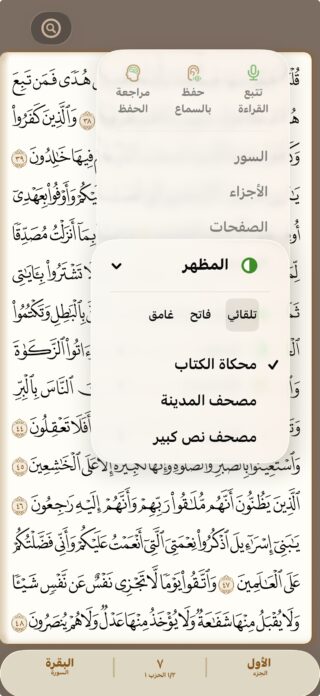 تتبع القراءة
حفظ بالسماع
مراجعة الحفظ
السور
الأجزاء
الصفحات
المظهر
تلقائي فاتح غامق
محكاة الكتاب
مصحف المدينة
مصحف نص كبير
هُدَاىَ فَمَن تَبِعَ
٣٨ وَالَّذِينَ كَفَرُوا
فِيهَا خَالِدُونَ ٣٩
وَأَوْفُوا بِعَهْدِىٓ
بِمَآ أَنزَلْتُ مُصَدِّقًا
تَشْتَرُوا بِـَٔايَـٰتِى
بِالْبَـٰطِلِ وَتَكْتُمُوا
النَّاسَ بِالْبِرِّ
أَفَلَا تَعْقِلُونَ ٤٤
وَاسْتَعِينُوا بِالصَّبْرِ وَالصَّلَوٰةِ وَإِنَّهَا لَكَبِيرَةٌ إِلَّا عَلَى الْخَـٰشِعِينَ ٤٥
الَّذِينَ يَظُنُّونَ أَنَّهُم مُّلَـٰقُوا رَبِّهِمْ وَأَنَّهُمْ إِلَيْهِ رَٰجِعُونَ ٤٦
يَـٰبَنِىٓ إِسْرَٰٓءِيلَ اذْكُرُوا نِعْمَتِىَ الَّتِىٓ أَنْعَمْتُ عَلَيْكُمْ وَأَنِّى فَضَّلْتُكُمْ
عَلَى الْعَـٰلَمِينَ ٤٧ وَاتَّقُوا يَوْمًا لَّا تَجْزِى نَفْسٌ عَن نَّفْسٍ شَيْـًٔا
وَلَا يُقْبَلُ مِنْهَا شَفَـٰعَةٌ وَلَا يُؤْخَذُ مِنْهَا عَدْلٌ وَلَا هُمْ يُنصَرُونَ ٤٨
الأول
الجزء
٧
١/٢ الحزب ١
البقرة
السورة